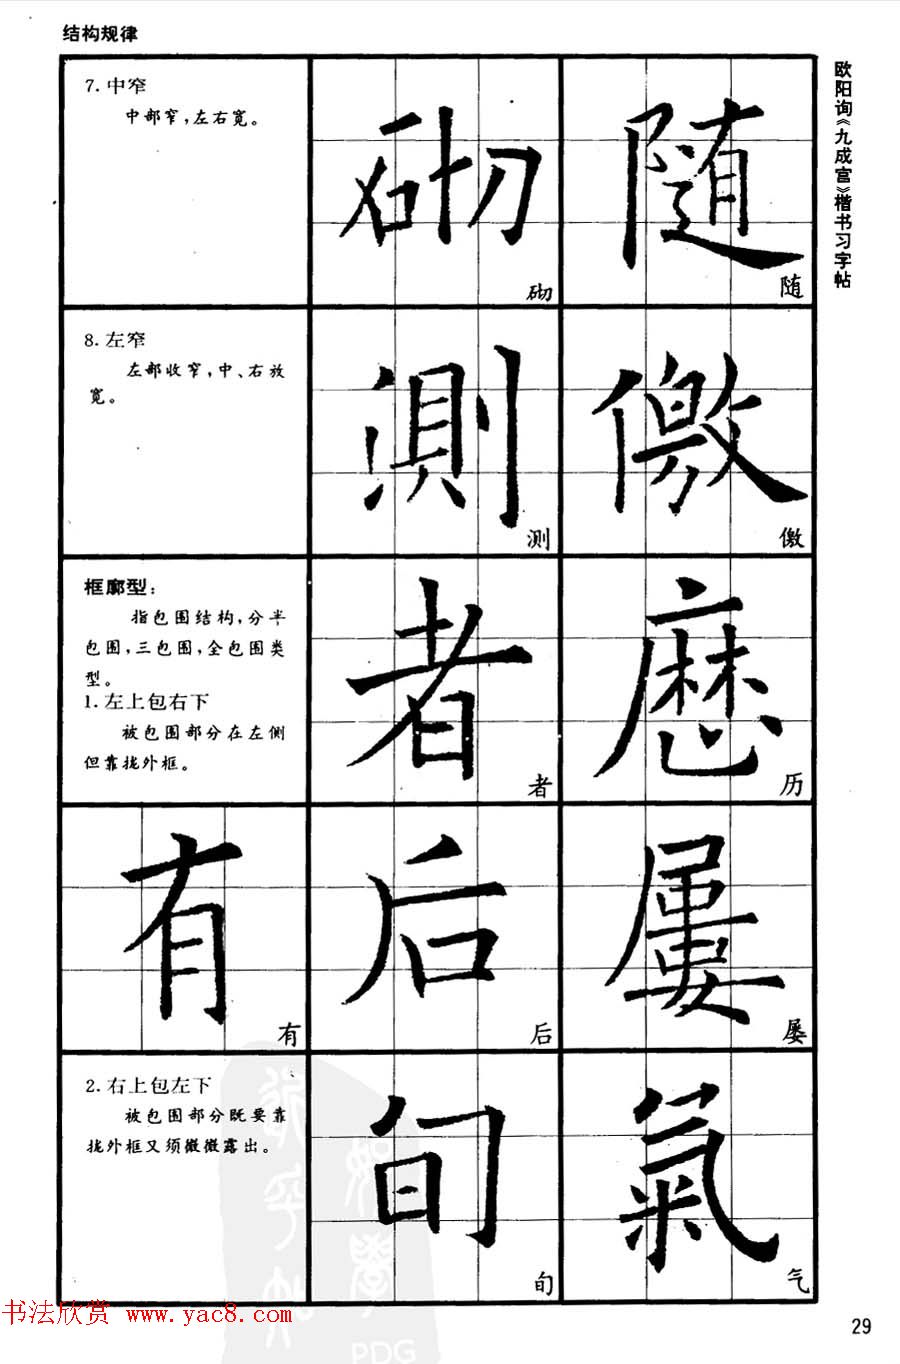 结构规律
欧阳询《九成宫》楷书习字帖
7. 中窄
中部窄，左右宽。
砌
砌
随
随
8. 左窄
左部收窄，中、右放
宽。
测
测
儌
儌
框廓型：
指包围结构，分半
包围，三包围，全包围类
型。
1. 左上包右下
被包围部分在左侧
但靠拢外框。
者
者
歷
历
有
有
后
后
屢
屡
2. 右上包左下
被包围部分既要靠
拢外框又须微微露出。
旬
旬
氣
气
书法欣赏 www.yac8.com
PDG
29